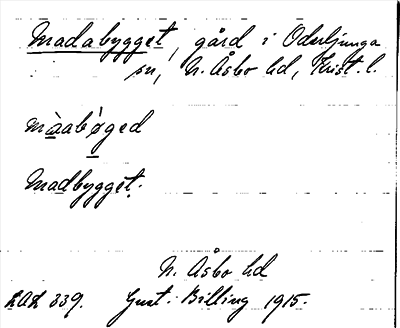 Madabygget, gård i Oderljunga
sn, N. Åsbo hd, Krist. l.
màabǿged
Madbygget.
N. Åsbo hd
LAL 339. Gust. Billing 1915.